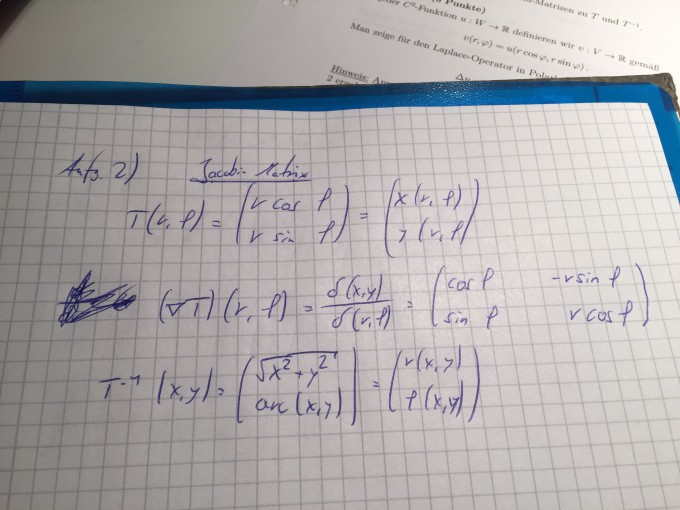 -Matrizen zu T und T⁻¹.
jeder C²-Funktion u : W → ℝ definieren wir v : V → ℝ gemäß
v(r, φ) = u(r cos φ, r sin φ) .
Man zeige für den Laplace-Operator in
Hinweis:
Aufg. 2) Jacobi-Matrix
T(r, φ) = (r cos φ r sin φ) = (x (r, φ) y (r, φ)
(∇T)(r, φ) = δ(x,y)/δ(r,φ) = (cos φ -r sin φ sin φ r cos φ)
T⁻¹ (x,y) = (√x²+y² arc (x,y)) = (r(x,y) φ(x,y))